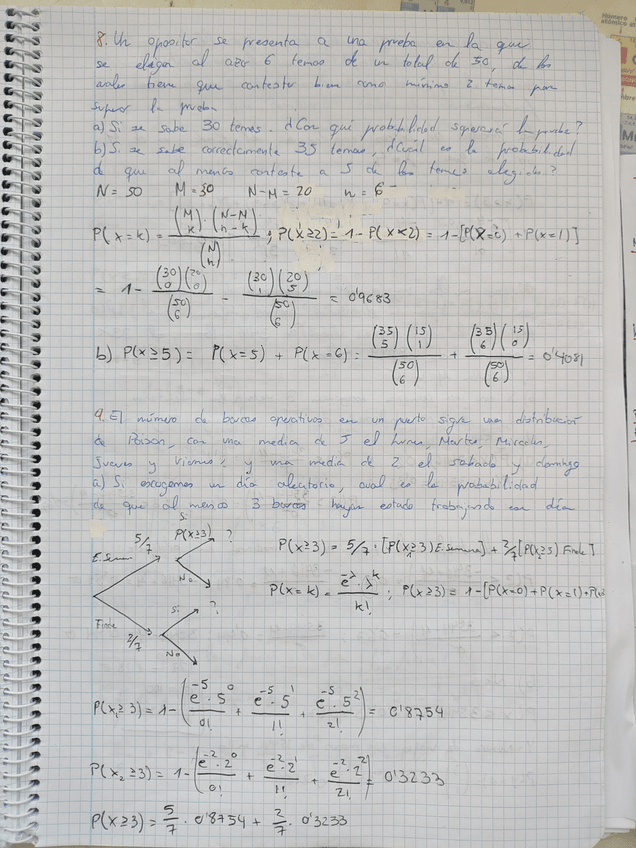 8. Un opositor se presenta a una prueba en la que
se eligen al azar 6 temas de un total de 50, de los
cuales tiene que contestar bien como mínimo 2 temas para
superar la prueba
a) Si se sabe 30 temas. ¿Con qué probabilidad superará la prueba?
b) Si se sabe correctamente 35 temas, ¿Cuál es la probabilidad
de que al menos conteste a 5 de los temas elegidos?
N = 50 M = 30 N-M = 20 n = 6
P(x=k) = (M k)·(N-M n-k) / (N n) ; P(x≥2) = 1 - P(x<2) = 1 - [P(x=0) + P(x=1)]
= 1 - (30 0)(20 0) / (50 6) - (30 1)(20 5) / (50 6) = 0'9683
b) P(x≥5) = P(x=5) + P(x=6) = (35 5)(15 1) / (50 6) + (35 6)(15 0) / (50 6) = 0'4081
9. El número de barcos operativos en un puerto sigue una distribución
de Poison, con una media de 5 el Lunes, Martes, Miercoles,
Jueves y Viernes; y una media de 2 el sabado y domingo
a) Si escogemos un día aleatorio, cual es la probabilidad
de que al menos 3 barcos hayan estado trabajando ese día
5/7 Si P(x≥3) ?
E. Semana No
Si ?
Finde 2/7 No
P(x≥3) = 5/7 · [P(x≥3) E. Semana] + 2/7 [P(x≥3) Finde]
P(x=k) = e^-λ · λ^k / k! ; P(x≥3) = 1 - [P(x=0) + P(x=1) + P(x
P(x₁≥3) = 1 - (e^-5 · 5^0 / 0! + e^-5 · 5^1 / 1! + e^-5 · 5^2 / 2!) = 0'8754
P(x₂≥3) = 1 - (e^-2 · 2^0 / 0! + e^-2 · 2^1 / 1! + e^-2 · 2^2 / 2!) = 0'3233
P(x≥3) = 5/7 · 0'8754 + 2/7 · 0'3233